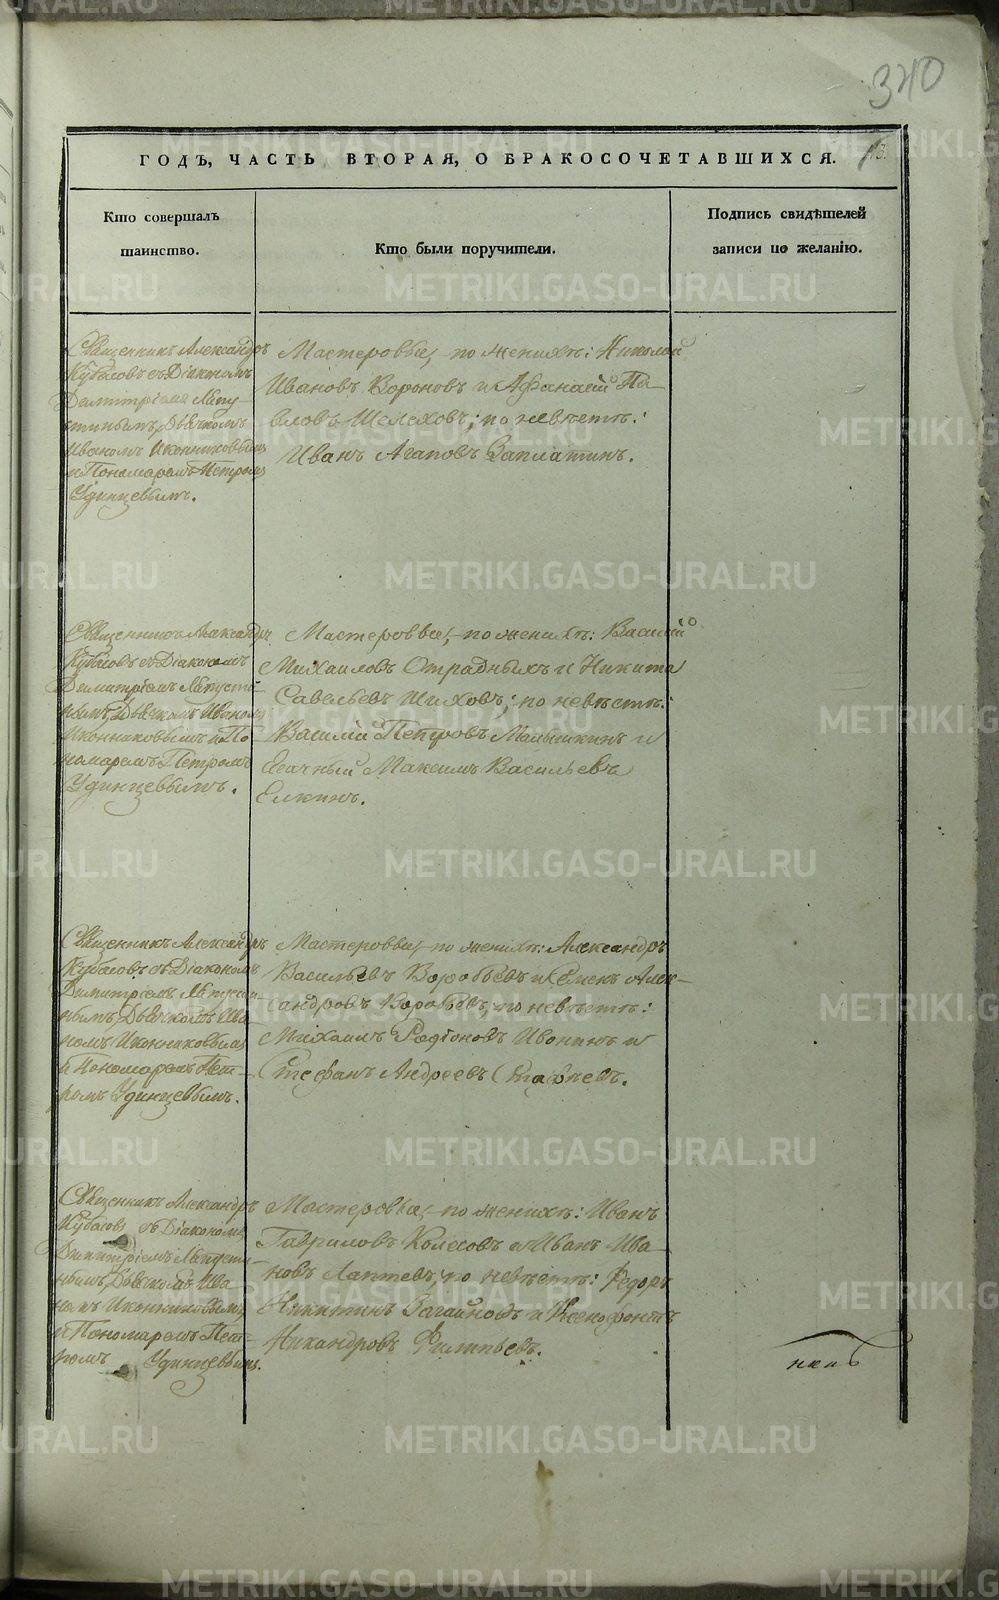 340
ГОДЪ, ЧАСТЬ ВТОРАЯ, О БРАКОСОЧЕТАВШИХСЯ.
13.
Кто совершалъ
таинство.
Кто были поручители.
Подпись свидѣтелей
записи по желанію.
Священникъ Александръ
Кубасовъ съ Діакономъ
Димитріемъ Мѣпу-
стинымъ, Дьячкомъ
Иваномъ Иконниковымъ
и Пономаремъ Петромъ
Удинцевымъ.
Мастеровые, по женихѣ: Николай
Ивановъ Вороновъ и Афанасій Па-
вловъ Шелеховъ; по невѣстѣ:
Иванъ Агаповъ Заплатинъ.
Священникъ Александръ
Кубасовъ съ Діакономъ
Димитріемъ Мѣпусти-
нымъ, Дьячкомъ Иваномъ
Иконниковымъ и По-
номаремъ Петромъ
Удинцевымъ.
Мастеровые, по женихѣ: Василій
Михаиловъ Отрадныхъ и Никита
Савельевъ Шиховъ; по невѣстѣ:
Василій Петровъ Малышкинъ и
Максимъ Васильевъ
Елкинъ.
Священникъ Александръ
Кубасовъ съ Діакономъ
Димитріемъ Мѣпусти-
нымъ, Дьячкомъ Ива-
номъ Иконниковымъ
и Пономаремъ Пет-
ромъ Удинцевымъ.
Мастеровые, по женихѣ: Александръ
Васильевъ Воробьевъ и Алек-
сандровъ Воробьевъ, по невѣстѣ:
Михаилъ Родіоновъ Ивонинъ и
Стефанъ Андреевъ
Священникъ Александръ
Кубасовъ съ Діакономъ
Димитріемъ Мѣпусти-
нымъ, Дьячкомъ Ива-
номъ Иконниковымъ
и Пономаремъ Пет-
ромъ Удинцевымъ.
Мастеровые, по женихѣ: Иванъ
Гавриловъ Колесовъ и Иванъ Ива-
новъ Лаптевъ; по невѣстѣ: Федоръ
Никитинъ Загайновъ и Ксенофонтъ
Никандровъ Филипьевъ.
METRIKI.GASO-URAL.RU